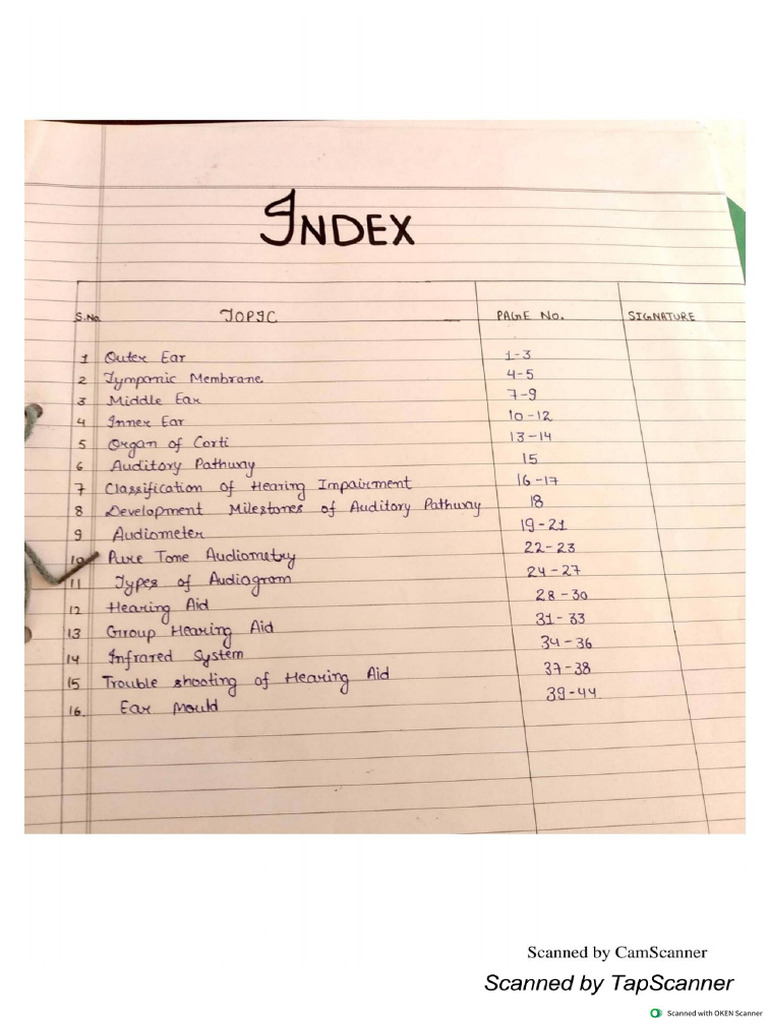 INDEX
S.No. TOPIC PAGE No. SIGNATURE
1 Outer Ear 1-3
2 Tympanic Membrane 4-5
3 Middle Ear 7-9
4 Inner Ear 10-12
5 Organ of Corti 13-14
6 Auditory Pathway 15
7 Classification of Hearing Impairment 16-17
8 Development Milestones of Auditory Pathway 18
9 Audiometer 19-21
10 Pure Tone Audiometry 22-23
11 Types of Audiogram 24-27
12 Hearing Aid 28-30
13 Group Hearing Aid 31-33
14 Infrared System 34-36
15 Trouble shooting of Hearing Aid 37-38
16. Ear Mould 39-44
Scanned by CamScanner
Scanned by TapScanner
Scanned with OKEN Scanner